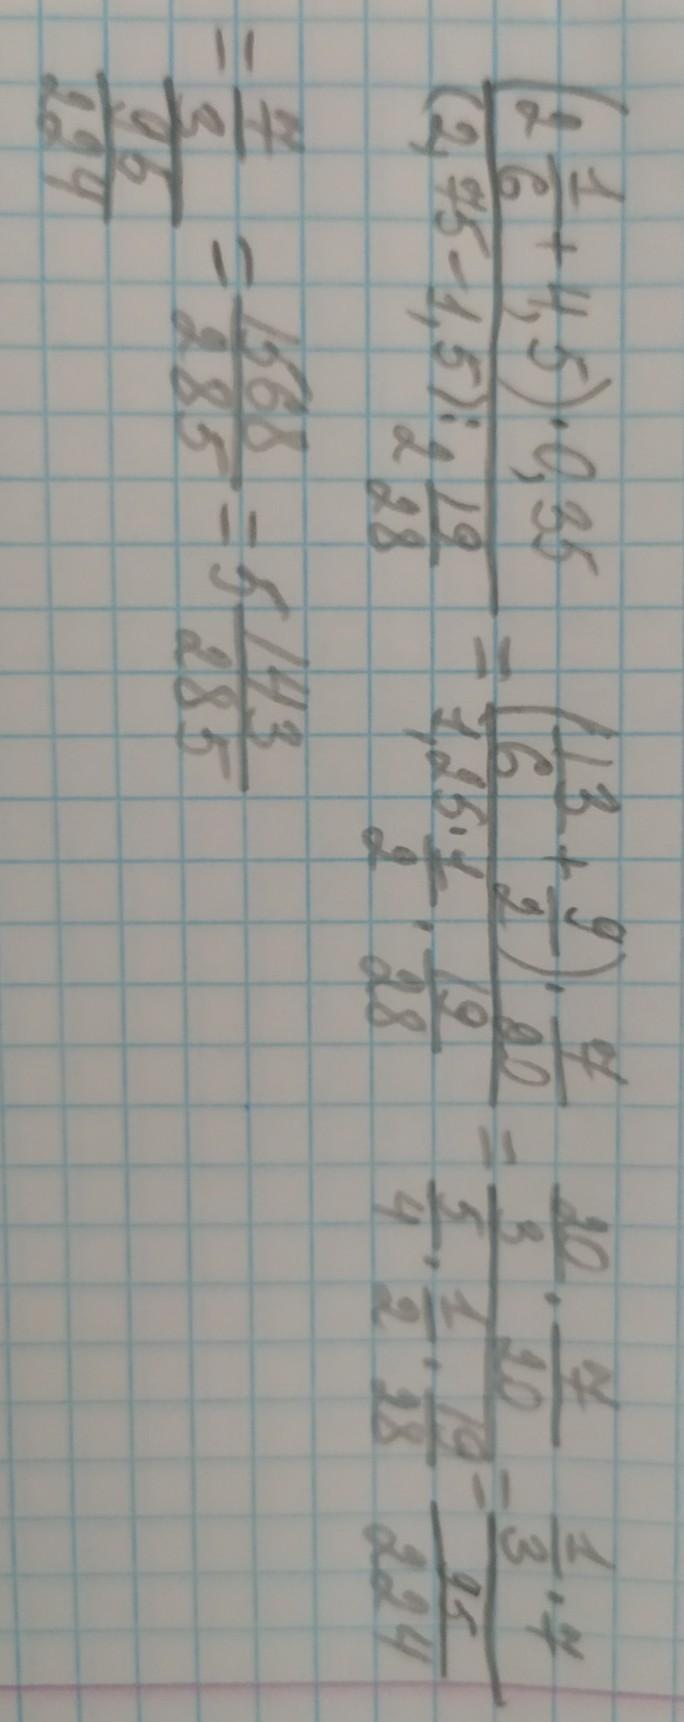 (2 1/6 + 4,5) · 0,35 / (2,75 - 1,5) : 2 19/28 = (13/6 + 9/2) · 7/20 / 1,25 · 1/2 · 19/28 = 20/3 · 7/20 / 5/4 · 1/2 · 19/28 = 1/3 · 7 / 95/224
= 7/3 / 95/224 = 1568/285 = 5 143/285